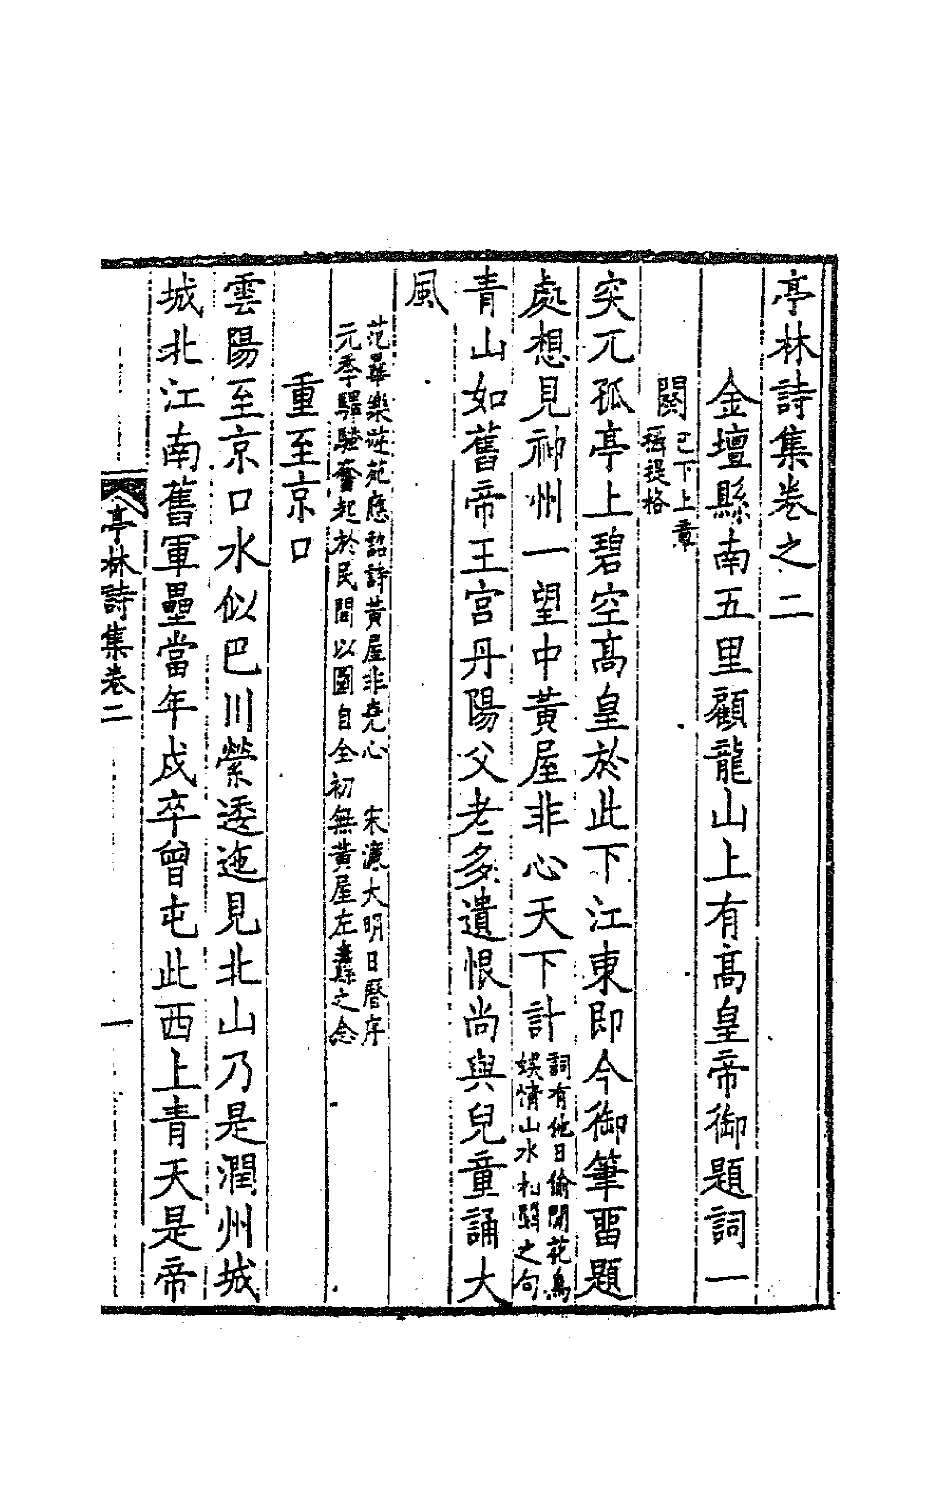 亭林詩集卷之二
金壇縣南五里顧龍山上有高皇帝御題詞一
闋已下上章攝提格
突兀孤亭上碧空高皇於此下江東即今御筆留題
處想見神州一望中黃屋非心天下計詞有他日偷閒花鳥娛情山水相翳之句
青山如舊帝王宮丹陽父老多遺恨尚與兒童誦大
風
范曅樂遊苑應詔詩黃屋非堯心 宋濂大明日曆序
元季驛騷奮起於民間以圖自全初無黃屋左纛之念
重至京口
雲陽至京口水似巴川縈逶迤見北山乃是潤州城
城北江南舊軍壘當年戍卒曾屯此西上青天是帝
亭林詩集卷二
一